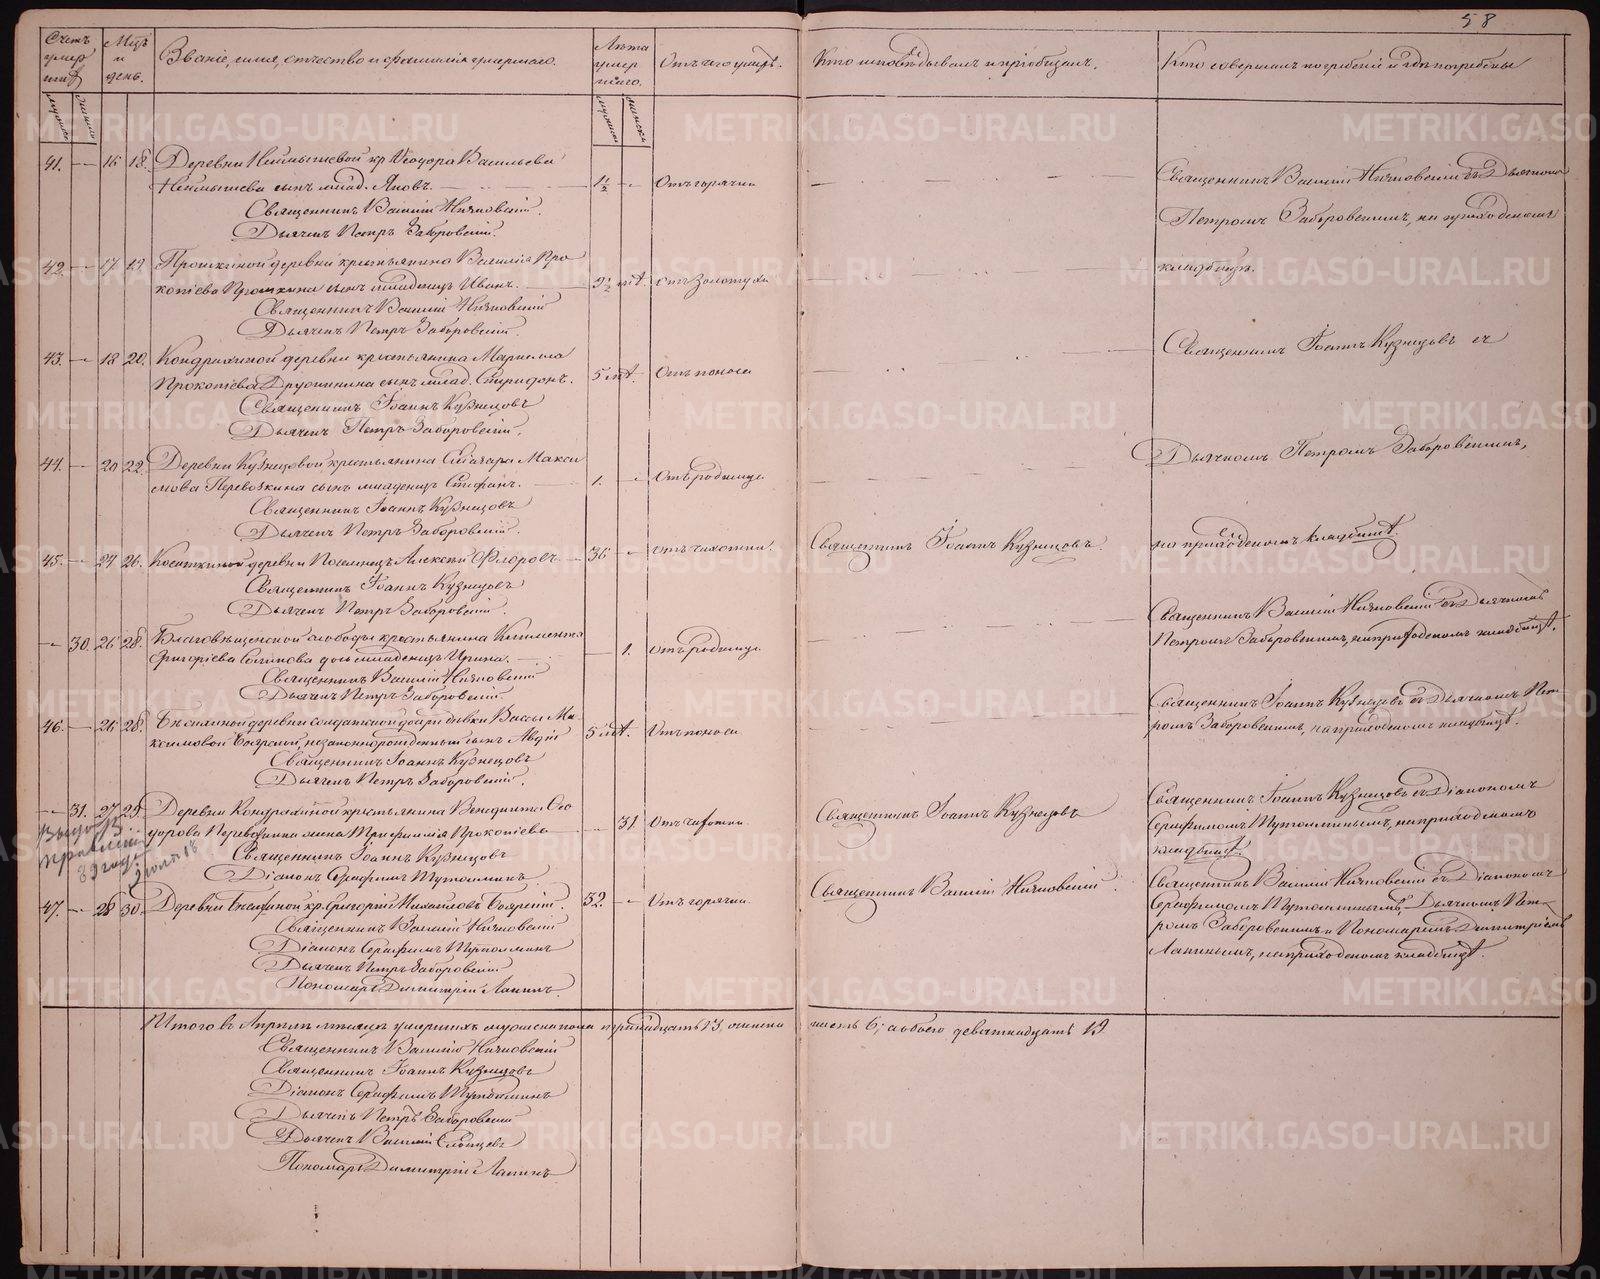 58
Счетъ умершихъ
Мцъ и день.
Званіе, имя, отчество и фамилія умершаго.
Лѣта умершаго.
Отъ чего умеръ.
Кто исповѣдывалъ и пріобщалъ.
Кто совершалъ погребеніе и гдѣ погребены
мужеска
женска
мужеска
женска
41. — 16 18. Деревни кр. Ѳеодора Васильева
сынъ млад. Яковъ. 1½ — Отъ горячки
Священникъ Василій
Дьячекъ Петръ Заборовскій.
Священникъ Василій съ Дьячкомъ
Петромъ Заборовскимъ, на приходскомъ
кладбищѣ.
42. — 17 19. Прошкиной деревни крестьянина Василія Про
копіева Прошкина сынъ младенецъ Иванъ. 2½ лѣт. отъ золотухи
Священникъ Василій
Дьячекъ Петръ Заборовскій.
43. — 18 20. Кондрашиной деревни крестьянина
Прокопіева Дружинина сынъ млад. 5 лѣт. Отъ поноса
Священникъ Іоаннъ Кузнецовъ
Дьячекъ Петръ Заборовскій.
Священникъ Іоаннъ Кузнецовъ съ
Дьячкомъ Петромъ Заборовскимъ,
на приходскомъ кладбищѣ.
44. — 20 22. Деревни Кузнецовой крестьянина Макси
мова Перевозкина сынъ младенецъ Стефанъ. 1. — Отъ родимца.
Священникъ Іоаннъ Кузнецовъ
Дьячекъ Петръ Заборовскій.
45. — 24 26. деревни Поселенецъ Алексѣй Флоровъ. 36 — отъ чахотки.
Священникъ Іоаннъ Кузнецовъ.
Священникъ Іоаннъ Кузнецовъ
Дьячекъ Петръ Заборовскій.
— 30. 26 28. Благовѣщенской слободы крестьянина Климента
Григорьева дочь младенецъ Ирина. — 1. отъ родимца.
Священникъ Василій
Дьячекъ Петръ Заборовскій.
Священникъ Василій съ Дьячкомъ
Петромъ Заборовскимъ, на приходскомъ кладбищѣ.
46. — 26 28. деревни солдатской дѣвки Вассы Ма-
ксимовой Боярской, незаконнорожденный сынъ Авдій 5 лѣт. Отъ поноса.
Священникъ Іоаннъ Кузнецовъ
Дьячекъ Петръ Заборовскій.
Священникъ Іоаннъ Кузнецовъ съ Дьячкомъ Пет-
ромъ Заборовскимъ, на приходскомъ кладбищѣ.
— 31. 27 29. Деревни Кондрашиной крестьянина Венедикта Ѳео
дорова Перевозкина жена Прокопіева — 31. Отъ чахотки.
Священникъ Іоаннъ Кузнецовъ
Священникъ Іоаннъ Кузнецовъ
Діаконъ Серафимъ
Священникъ Іоаннъ Кузнецовъ съ Діакономъ
Серафимомъ на приходскомъ
кладбищѣ.
47. — 28 30. Деревни кр. Григорій Михайловъ Боярскій. 52. — Отъ горячки.
Священникъ Василій
Священникъ Василій
Діаконъ Серафимъ
Дьячекъ Петръ Заборовскій
Пономарь Димитрій Лапинъ.
Священникъ Василій съ Діакономъ
Серафимомъ Дьячкомъ Пет-
ромъ Заборовскимъ и Пономаремъ Димитріемъ
Лапинымъ, на приходскомъ кладбищѣ.
Итого въ Апрѣлѣ мѣсяцѣ умершихъ мужеска пола тринадцать 13, женска шесть 6; а обоего девятнадцать 19.
Священникъ Василій
Священникъ Іоаннъ Кузнецовъ
Діаконъ Серафимъ
Дьячекъ Петръ Заборовскій
Дьячекъ Василій
Пономарь Димитрій Лапинъ
METRIKI.GASO-URAL.RU